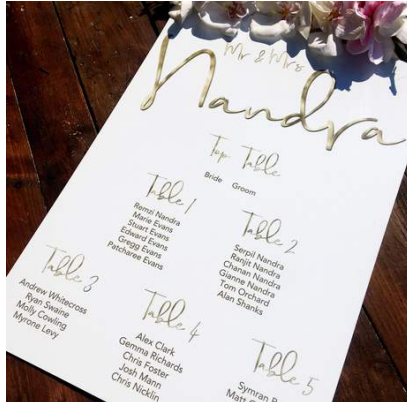 Mr & Mrs
Nandra
Top Table
Bride Groom
Table 1
Remzi Nandra
Marie Evans
Stuart Evans
Edward Evans
Gregg Evans
Patcharee Evans
Table 2
Serpil Nandra
Ranjit Nandra
Chanan Nandra
Gianne Nandra
Tom Orchard
Alan Shanks
Table 3
Andrew Whitecross
Ryan Swaine
Molly Cowling
Myrone Levy
Table 4
Alex Clark
Gemma Richards
Chris Foster
Josh Mann
Chris Nicklin
Table 5
Symran